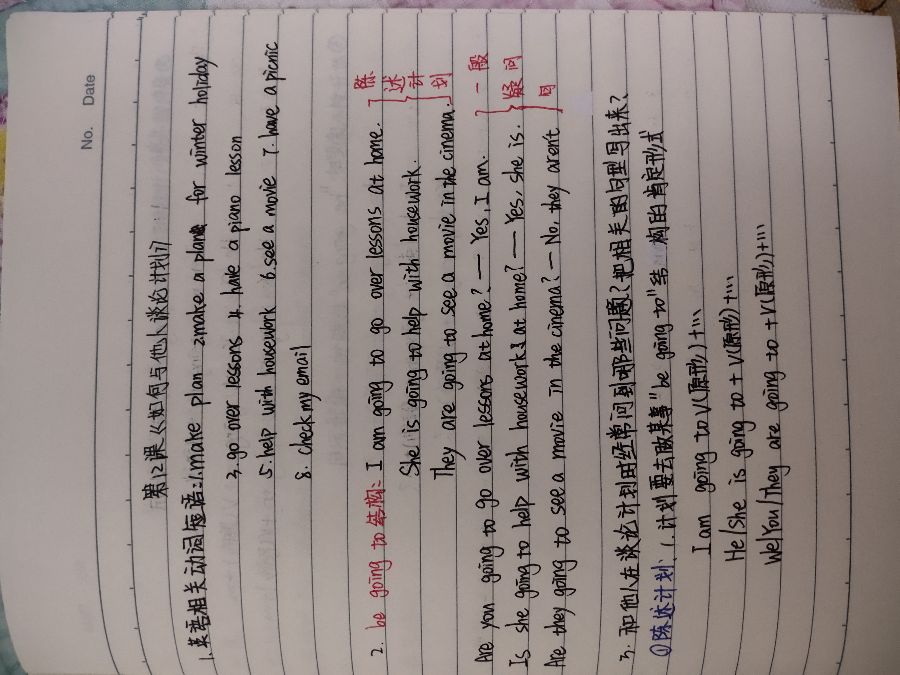 No.    Date
第12课《如何与他人谈论计划》
1.英语相关动词短语:1.make plan 2make a plane for winter holiday
3.go over lessons 4. have a piano lesson
5.help with housework 6.see a movie 7.have a picnic
8. check my email
2. be going to 结构: I am going to go over lessons at home. 陈述计划
She is going to help with housework.
They are going to see a movie in the cinema.
Are you going to go over lessons at home? — Yes, I am. 一般疑问句
Is she going to help with housework at home? — Yes, she is.
Are they going to see a movie in the cinema? — No, they arent
3. 和他人在谈论计划时经常问到哪些问题?把相关的句型写出来?
①陈述计划: 1.计划要去做某事"be going to"结构的肯定形式
I am going to V(原形)+...
He/She is going to + V(原形)+...
We/You/They are going to +V(原形)+...